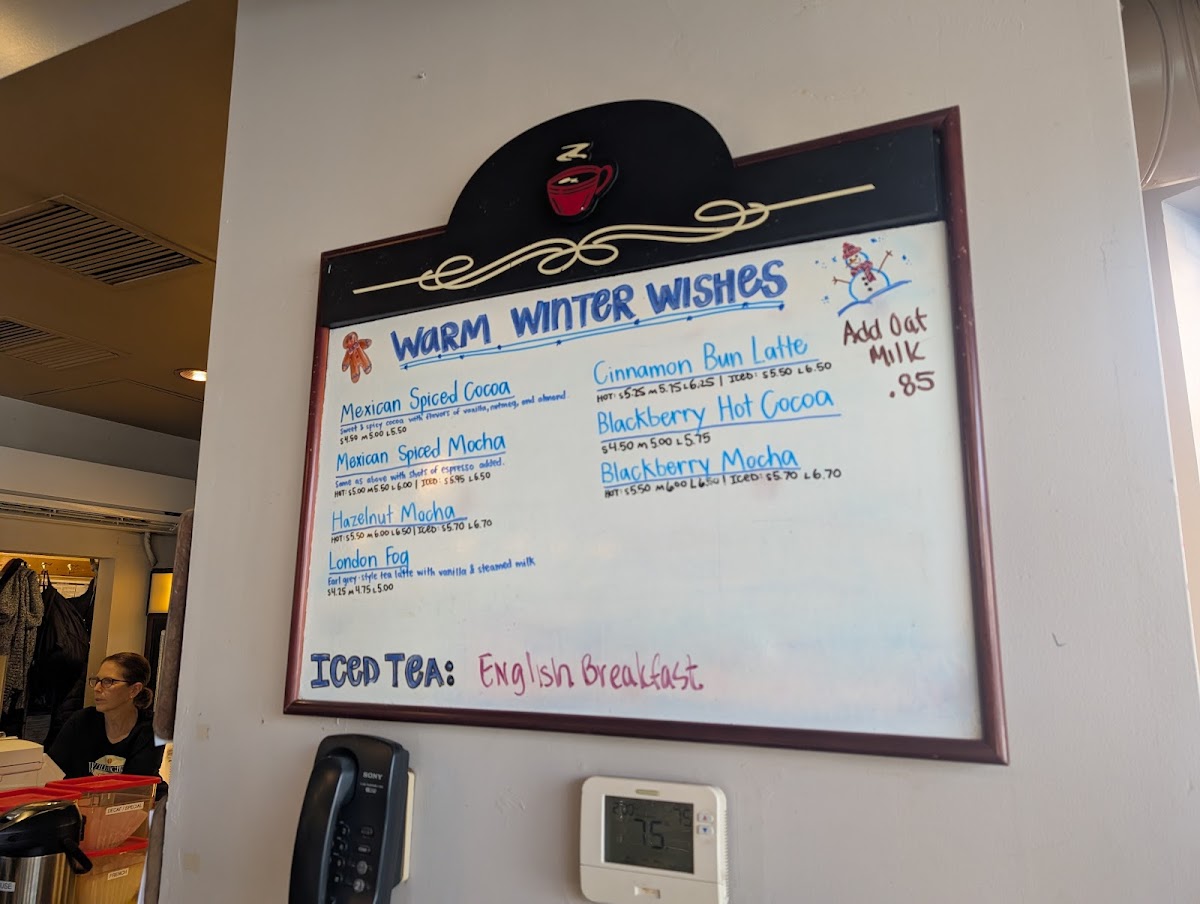 WARM WINTER WISHES
Mexican Spiced Cocoa
Sweet & spicy cocoa with flavors of vanilla, nutmeg, and almond.
S 4.50 M 5.00 L 5.50
Mexican Spiced Mocha
Same as above with shots of espresso added.
HOT: S 5.00 M 5.50 L 6.00 | ICED: S 5.95 L 6.50
Hazelnut Mocha
HOT: S 5.50 M 6.00 L 6.50 | ICED: S 5.70 L 6.70
London Fog
Earl grey-style tea latte with vanilla & steamed milk
S 4.25 M 4.75 L 5.00
Cinnamon Bun Latte
HOT: S 5.25 M 5.75 L 6.25 | ICED: S 5.50 L 6.50
Blackberry Hot Cocoa
S 4.50 M 5.00 L 5.75
Blackberry Mocha
HOT: S 5.50 M 6.00 L 6.50 | ICED: S 5.70 L 6.70
Add Oat
Milk
.85
ICED TEA: English Breakfast
SONY
75
DECAF / SPECIAL
FRENCH